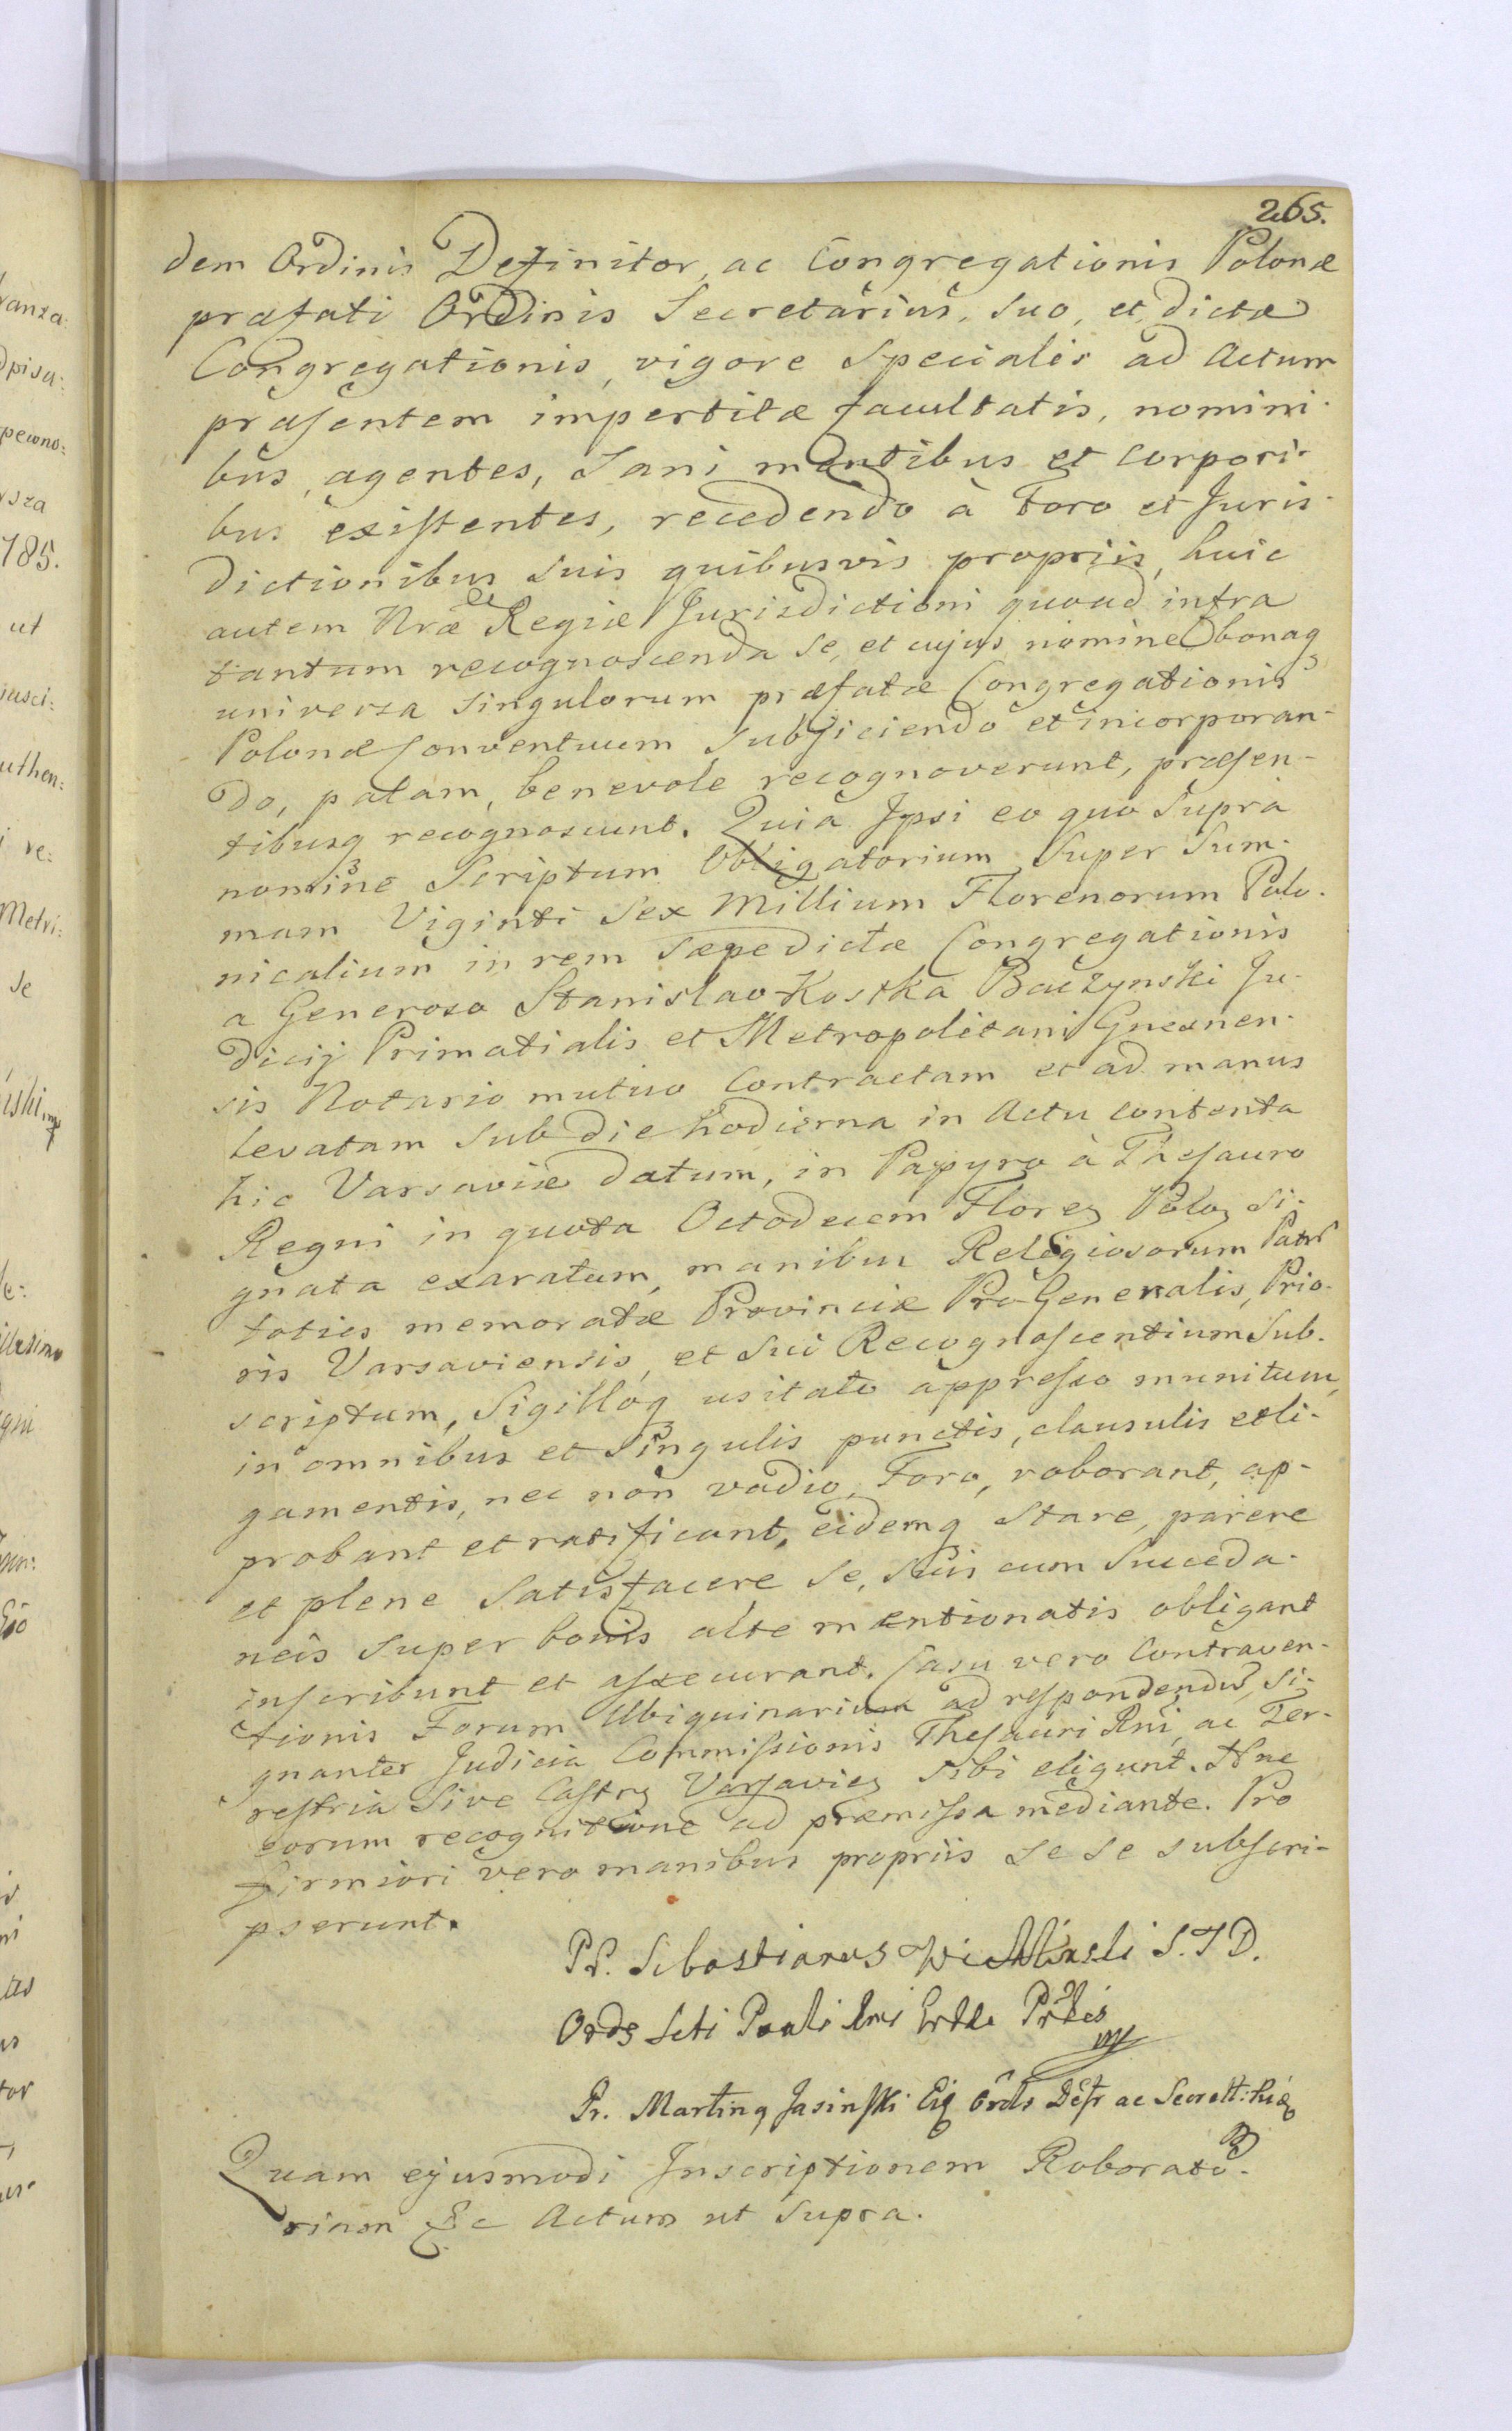 265.
dem Ordinis Definitor, ac Congregationis Polonæ
præfati Ordinis Secretarius, suo, et dictæ
Congregationis, vigore specialis ad Actum
præsentem impertitæ facultatis, nomini-
bus, agentes, Sani mentibus et corpori-
bus existentes, recedendo à Foro et Juris-
dictionibus suis quibusvis propriis, huic
autem Nræ Regiæ Jurisdictioni quoad infra
tantum recognoscenda se, et cujus nomine bonaq
universa singulorum præfatæ Congregationis
Polonæ Conventuum subjiciendo et incorporan-
do, palam, benevole recognoverunt, præsen-
tibusq recognoscunt. Quia Ipsi eo quo supra
nomine Scriptum Obligatorium super Sum-
mam Viginti Sex Millium Florenorum Polo-
nicalium in rem sæpedictæ Congregationis
a Generoso Stanislao Kostka Baczynski Ju-
dicij Primatialis et Metropolitani Gnesnen-
sis Notario mutuo contractam et ad manus
levatam sub die hodierna in Actu contenta
hic Varsaviæ datum, in Papyro à Thesauro
Regni in quota Octodecem Flor Pol si-
gnata exaratum, manibus Religiosorum Patr
toties memoratæ Provinciæ ProGeneralis, Prio-
ris Varsaviensis, et sui Recognoscentium sub-
scriptum, Sigilloq usitato appresso munitum,
in omnibus et singulis punctis, clausulis et li-
gamentis, nec non vadio, Foro, roborant, ap-
probant et ratificant, eidemq stare, parere
et plene satisfacere se, suis cum Succeda-
neis super bonis alte mentionatis obligant
inscribunt et assecurant. Casu vero contraven-
tionis Forum Ubiquinarium ad respondendu, si-
gnanter Judicia Commissionis Thesauri Rni, ac Ter-
restria sive Castr Varsavien sibi eligunt. Hac
eorum recognitione ad præmissa mediante. Pro
firmiori vero manibus propriis se se subscri-
pserunt.
Pr. Sebastianus S. T D.
Ords Scti Pauli Imi Ertæ
Pr. Martinq Jasinski Eiq Ordis Defr ac Secrett:
Quam ejusmodi Inscriptionem Roborato-
riam &c Actum ut supra.